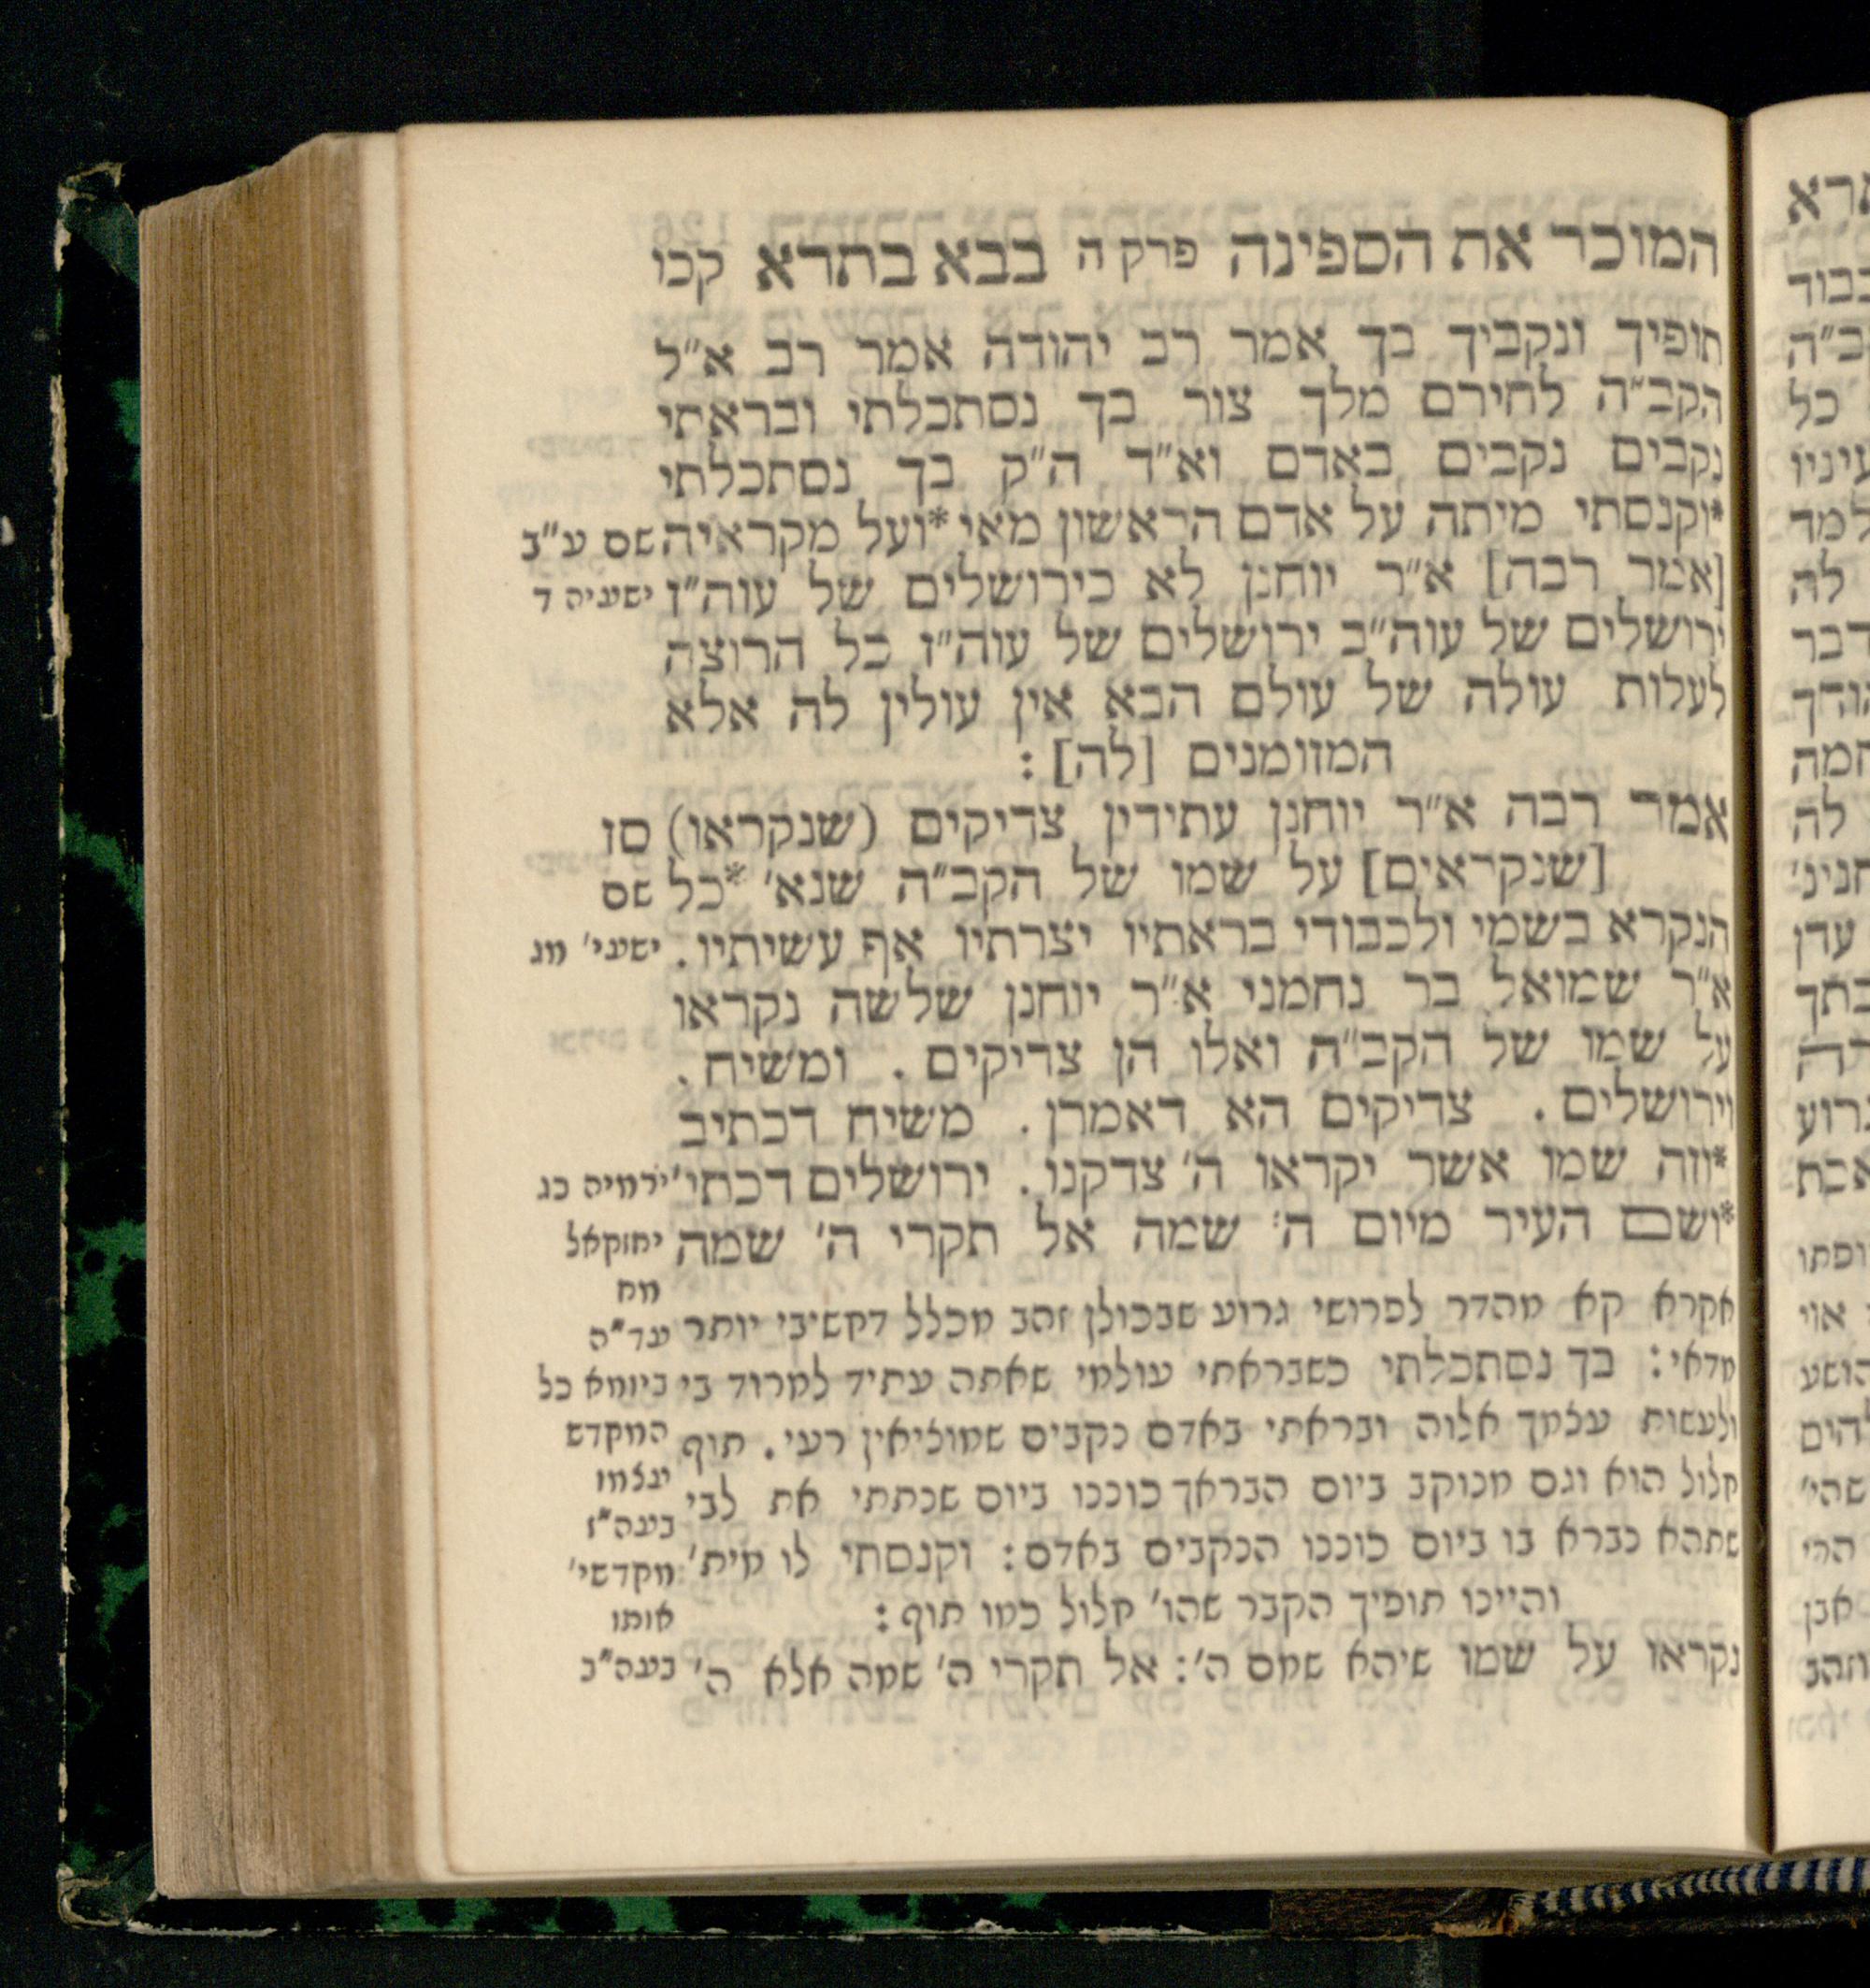 המוכר את הספינה פרק ה בבא בתרא קכו
תופיך ונקביך בך אמר רב יהודה אמר רב א״ל
הקב״ה לחירם מלך צור בך נסתכלתי ובראתי
נקבים נקבים באדם וא״ד ה״ק בך נסתכלתי
*וקנסתי מיתה על אדם הראשון מאי *ועל מקראיה שם ע״ב
[אמר רבה] א״ר יוחנן לא כירושלים של עוה״ז ישעיה ד
ירושלים של עוה״ב ירושלים של עוה״ז כל הרוצה
לעלות עולה של עולם הבא אין עולין לה אלא
המזומנים [לה]:
אמר רבה א״ר יוחנן עתידין צדיקים (שנקראו) סו
[שנקראים] על שמו של הקב״ה שנא׳ *כל שם
הנקרא בשמי ולכבודי בראתיו יצרתיו אף עשיתיו. ישעי׳ מג
א״ר שמואל בר נחמני א״ר יוחנן שלשה נקראו
על שמו של הקב״ה ואלו הן צדיקים. ומשיח.
וירושלים. צדיקים הא דאמרן. משיח דכתיב
*וזה שמו אשר יקראו ה׳ צדקנו. ירושלים דכתי׳ ירמיה כג
*ושם העיר מיום ה׳ שמה אל תקרי ה׳ שמה יחזקאל
מח
אקרא קא מהדר לפרושי גרוע שבכולן זהב מכלל דחשיבי יותר עד״ה
מדאי: בך נסתכלתי כשבראתי עולמי שאתה עתיד למרוד בי ביומא כל
ולעשות עצמך אלוה ובראתי באדם נקבים שמוציאין רעי. תוף המקדש
חלול הוא וגם מנוקב ביום הבראך כוננו ביום שנתתי את לבי יצלמו
בעה״ז
שתהא נברא בו ביום כוננו הנקבים באדם: וקנסתי לו מית׳ מקדשי׳
והיינו תופיך הקבר שהו׳ חלול כמו תוף: אותו
נקראו על שמו שיהא שמם ה׳: אל תקרי ה׳ שמה אלא ה׳ בעה״ב